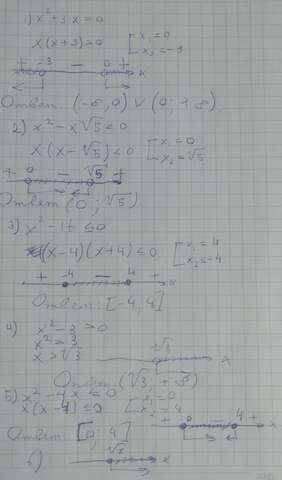 1) x² + 3x = 0
x(x+3) > 0 [ x₁ = 0
x₂ = -3
+ -3 - 0 + x
Ответ: (-∞, 0) ∪ (0; +∞)
2) x² - x√5 < 0
x(x - √5) < 0 [ x₁ = 0
x₂ = √5
+ 0 - √5 +
Ответ (0; √5)
3) x² - 16 ≤ 0
(x-4)(x+4) ≤ 0 [ x₁ = 4
x₂ = -4
+ -4 - 4 + x
Ответ: [-4, 4]
4) x² - 3 > 0
x² = 3
x > √3
√3 x
Ответ: (√3, +∞)
5) x² - 4x ≤ 0
x(x-4) ≤ 0 [ x₁ = 0
x₂ = 4
+ 0 - 4 + x
Ответ: [0; 4]
6) x